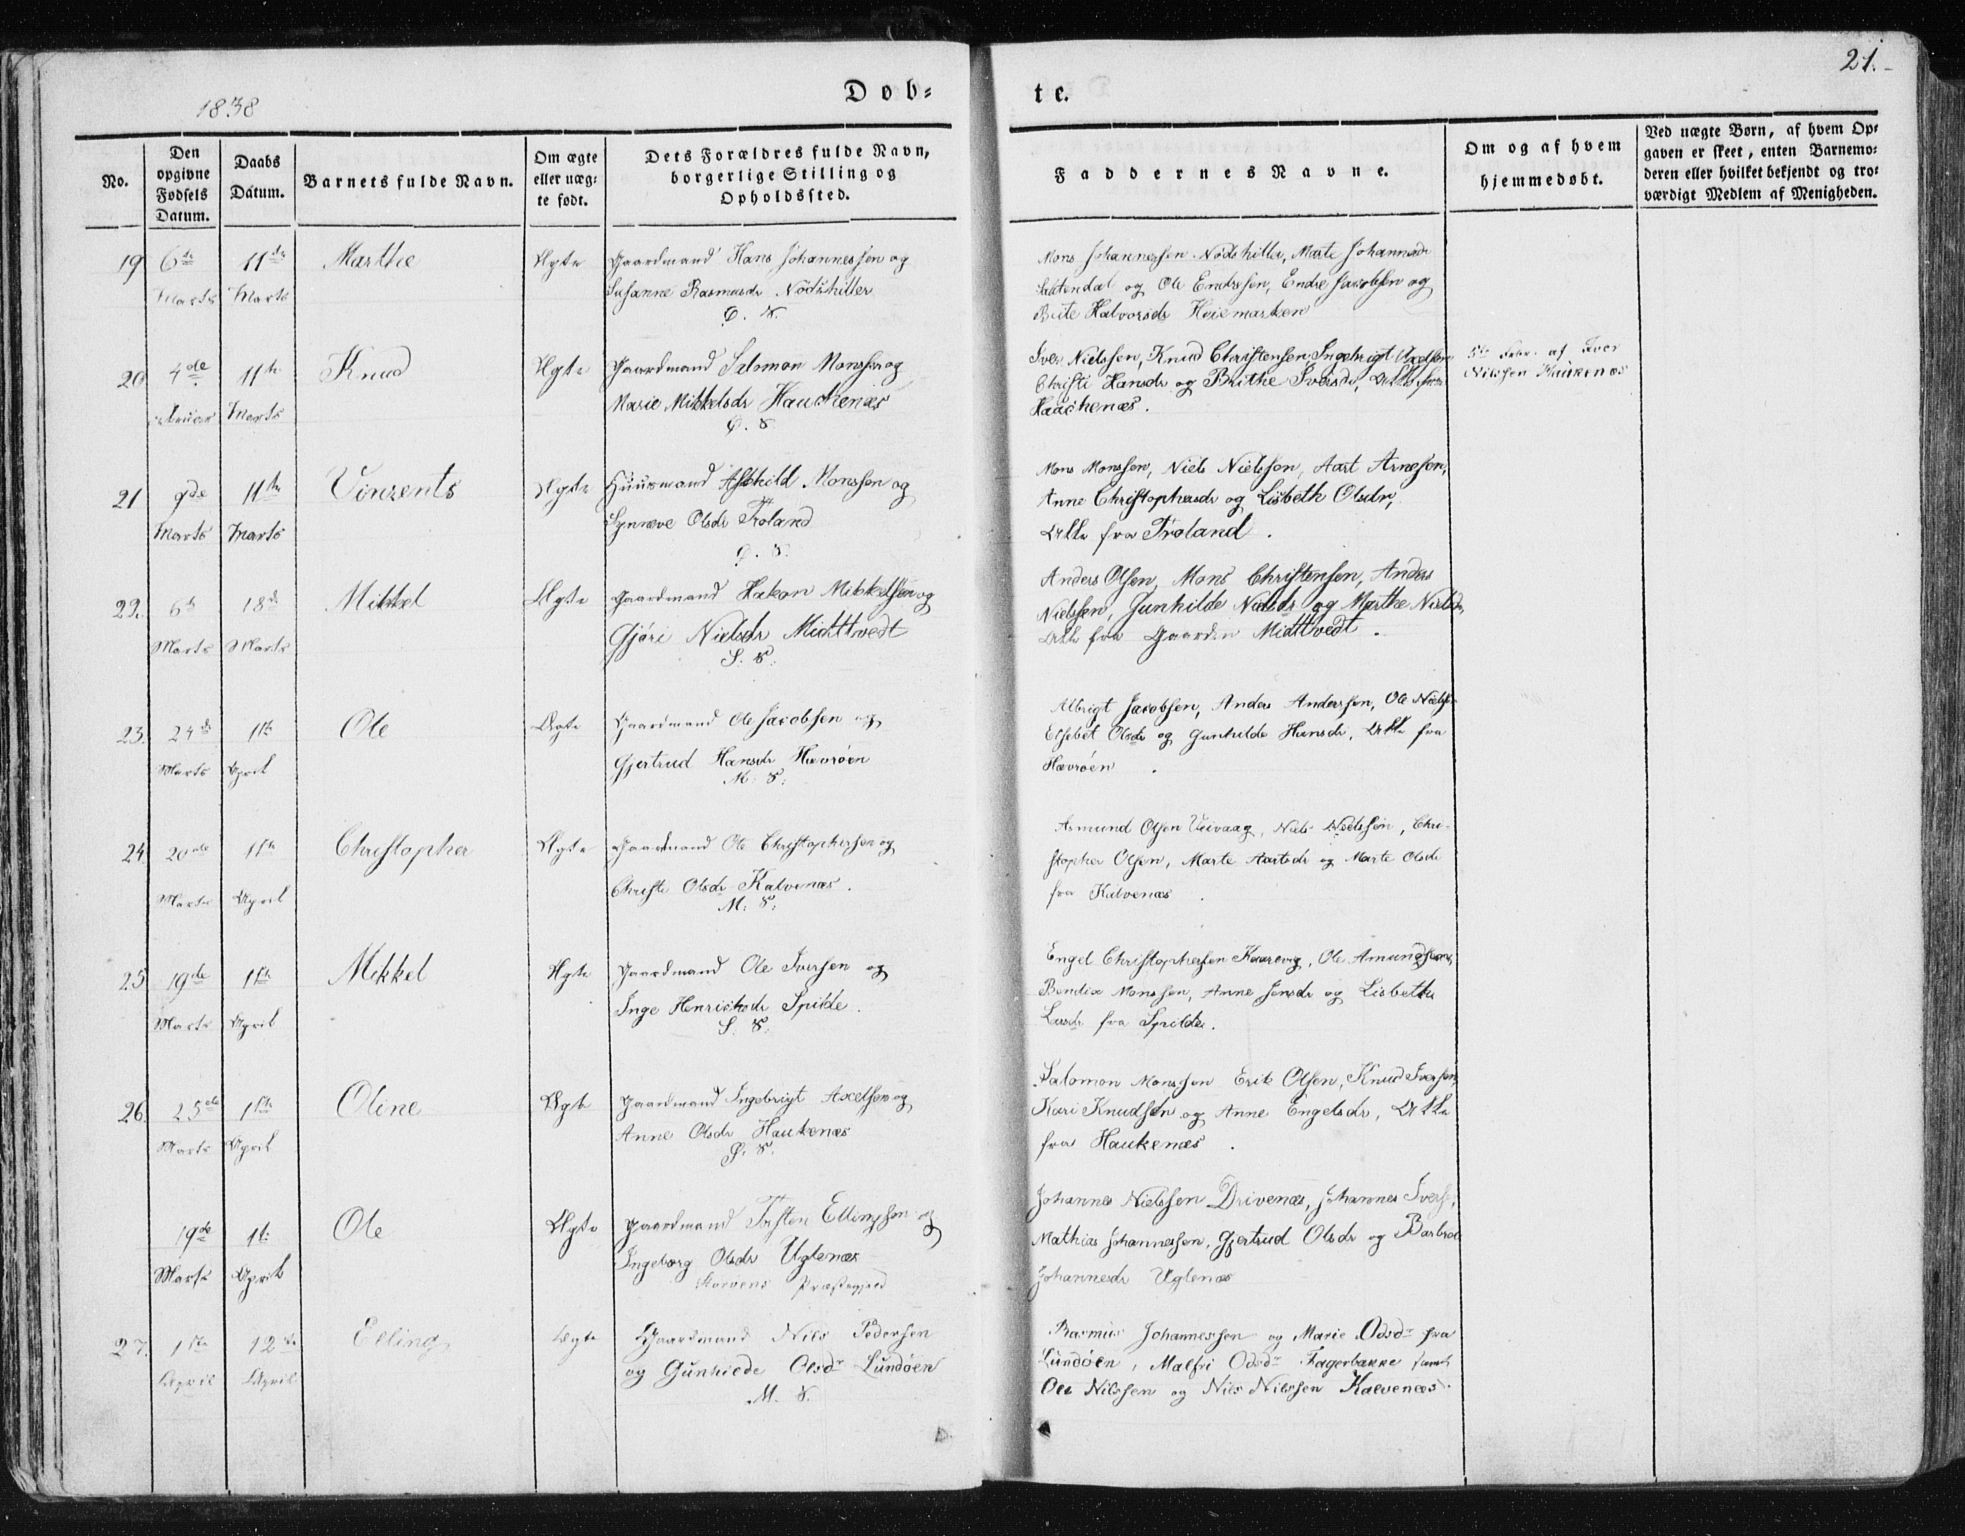 1838
Døb=
te.
21.
No.
Den opgivne Fødsels Datum.
Daabs Datum.
Barnets fulde Navn.
Om ægte eller uæg= te født.
Dets Forældres fulde Navn, borgerlige Stilling og Opholdssted.
Faddernes Navne.
Om og af hvem hjemmedøbt.
Ved uægte Børn, af hvem Op= gaven er skeet, enten Barnemo= deren eller hvilket bekjendt og tro= værdigt Medlem af Menigheden.
19 6te Marts 11te Marts Marthe Ægte
Gaardmand Hans Johannessen og
Susanne Rasmusdr Nødshiller
Mons Johannessen Nødshiller, Marte Johannesdr
og Ole Endresen, Endre Jacobsen og
Brite Halvorsdr Heiemarken
20 4de 11te Marts Knud Ægte
Gaardmand Salomon Monssen og
Marie Mikkelsdr Hauckenæs
Iver Nielssen, Knud Christensen, Ingebrigt Axelsen
Christi Hansdr og Brithe Iversdr, Alle fra
Haackenæs.
5te Febr. af Iver
Nilssen Haukenæs
21 9de Marts 11te Marts Vinzents Ægte
Huusmand Askild Monssen og
Synneve Olsdr Troland
Mons Monssen, Niels Nielssen, Aart Arnesen,
Anne Christophersdr og Lisbeth Olsdr,
Alle fra Trøland.
22. 6te Marts 18de Marts Mikkel Ægte
Gaardmand Hakon Mikkelsen og
Gjøri Nielsdr Midttvedt
S. S:
Anders Olsen, Mons Christensen, Anders
Nielssen, Gunhilde Nielsdr og Marthe Nielsdr,
Alle fra Gaarden Midttvedt.
23. 24de Marts 1ste April Ole Ægte
Gaardmand Ole Jacobsen og
Gjertrud Hansdr Hævrøen
M. S:
Albrigt Jacobsen, Anders Anderssen, Ole Nielss.
Elsebet Olsdr og Gunhilde Hansdr, Alle fra
Hævrøen.
24 20de Marts 1ste April Christopher Ægte
Gaardmand Ole Christophersen og
Christi Olsdr Kalvenæs.
M. S:
Asmund Olsen Veivaag, Niels Nielssen, Chri-
stopher Olsen, Marte Aartsdr og Marte Olsdr
fra Kalvenæs.
25 19de Marts 1ste April Mikkel Ægte
Gaardmand Ole Iversen og
Inge Henrichsdr Spilde.
S. S.
Engel Christophersen Kaarevig, Ole Amundsen,
Bendix Monssen, Anne Jensdr og Lisbethe
Larsdr fra Spilde.
26. 25de Marts 1ste April Oline Ægte
Gaardmand Ingebrigt Axelsen og
Anne Olsdr Haukenæs
Salomon Monssen Erik Olsen, Knud Iversen,
Kari Knudsen og Anne Engelsdr, Alle
fra Haukenæs.
19de Marts 1ste April Ole Ægte
Gaardmand Torsten Ellingsen og
Ingeborg Olsdr Uglenæs
Præstegjeld
Johannes Nielssen Drivenæs, Johannes Iverss.,
Mathias Johannessen, Gjertrud Olsdr og Barbroe
Johannesdr Uglenæs
27. 1ste April 12te April Elling Ægte
Gaardmand Nils Pedersen
og Gunhilde Olsdr Lundøen
M. S.
Rasmus Johannessen og Marie Odsdr fra
Lundøen, Malfri Odsdr Fagerbakke samt
Ole Nilssen og Nils Nilssen Kalvenæs.